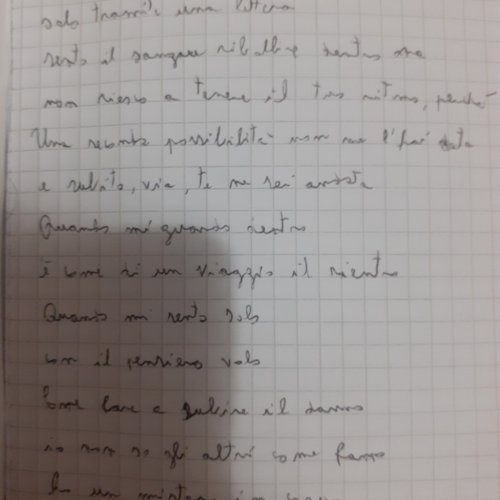 solo tramite una lettera
sento il sangue ribollire dentro ma
non riesco a tenere il tuo ritmo, perché
Una seconda possibilità non me l'hai data
e subito, via, te ne sei andata
Quando mi guardo dentro
è come di un viaggio il rientro
Quando mi sento solo
con il pensiero volo
Come fare a subire il danno
io non so gli altri come fanno